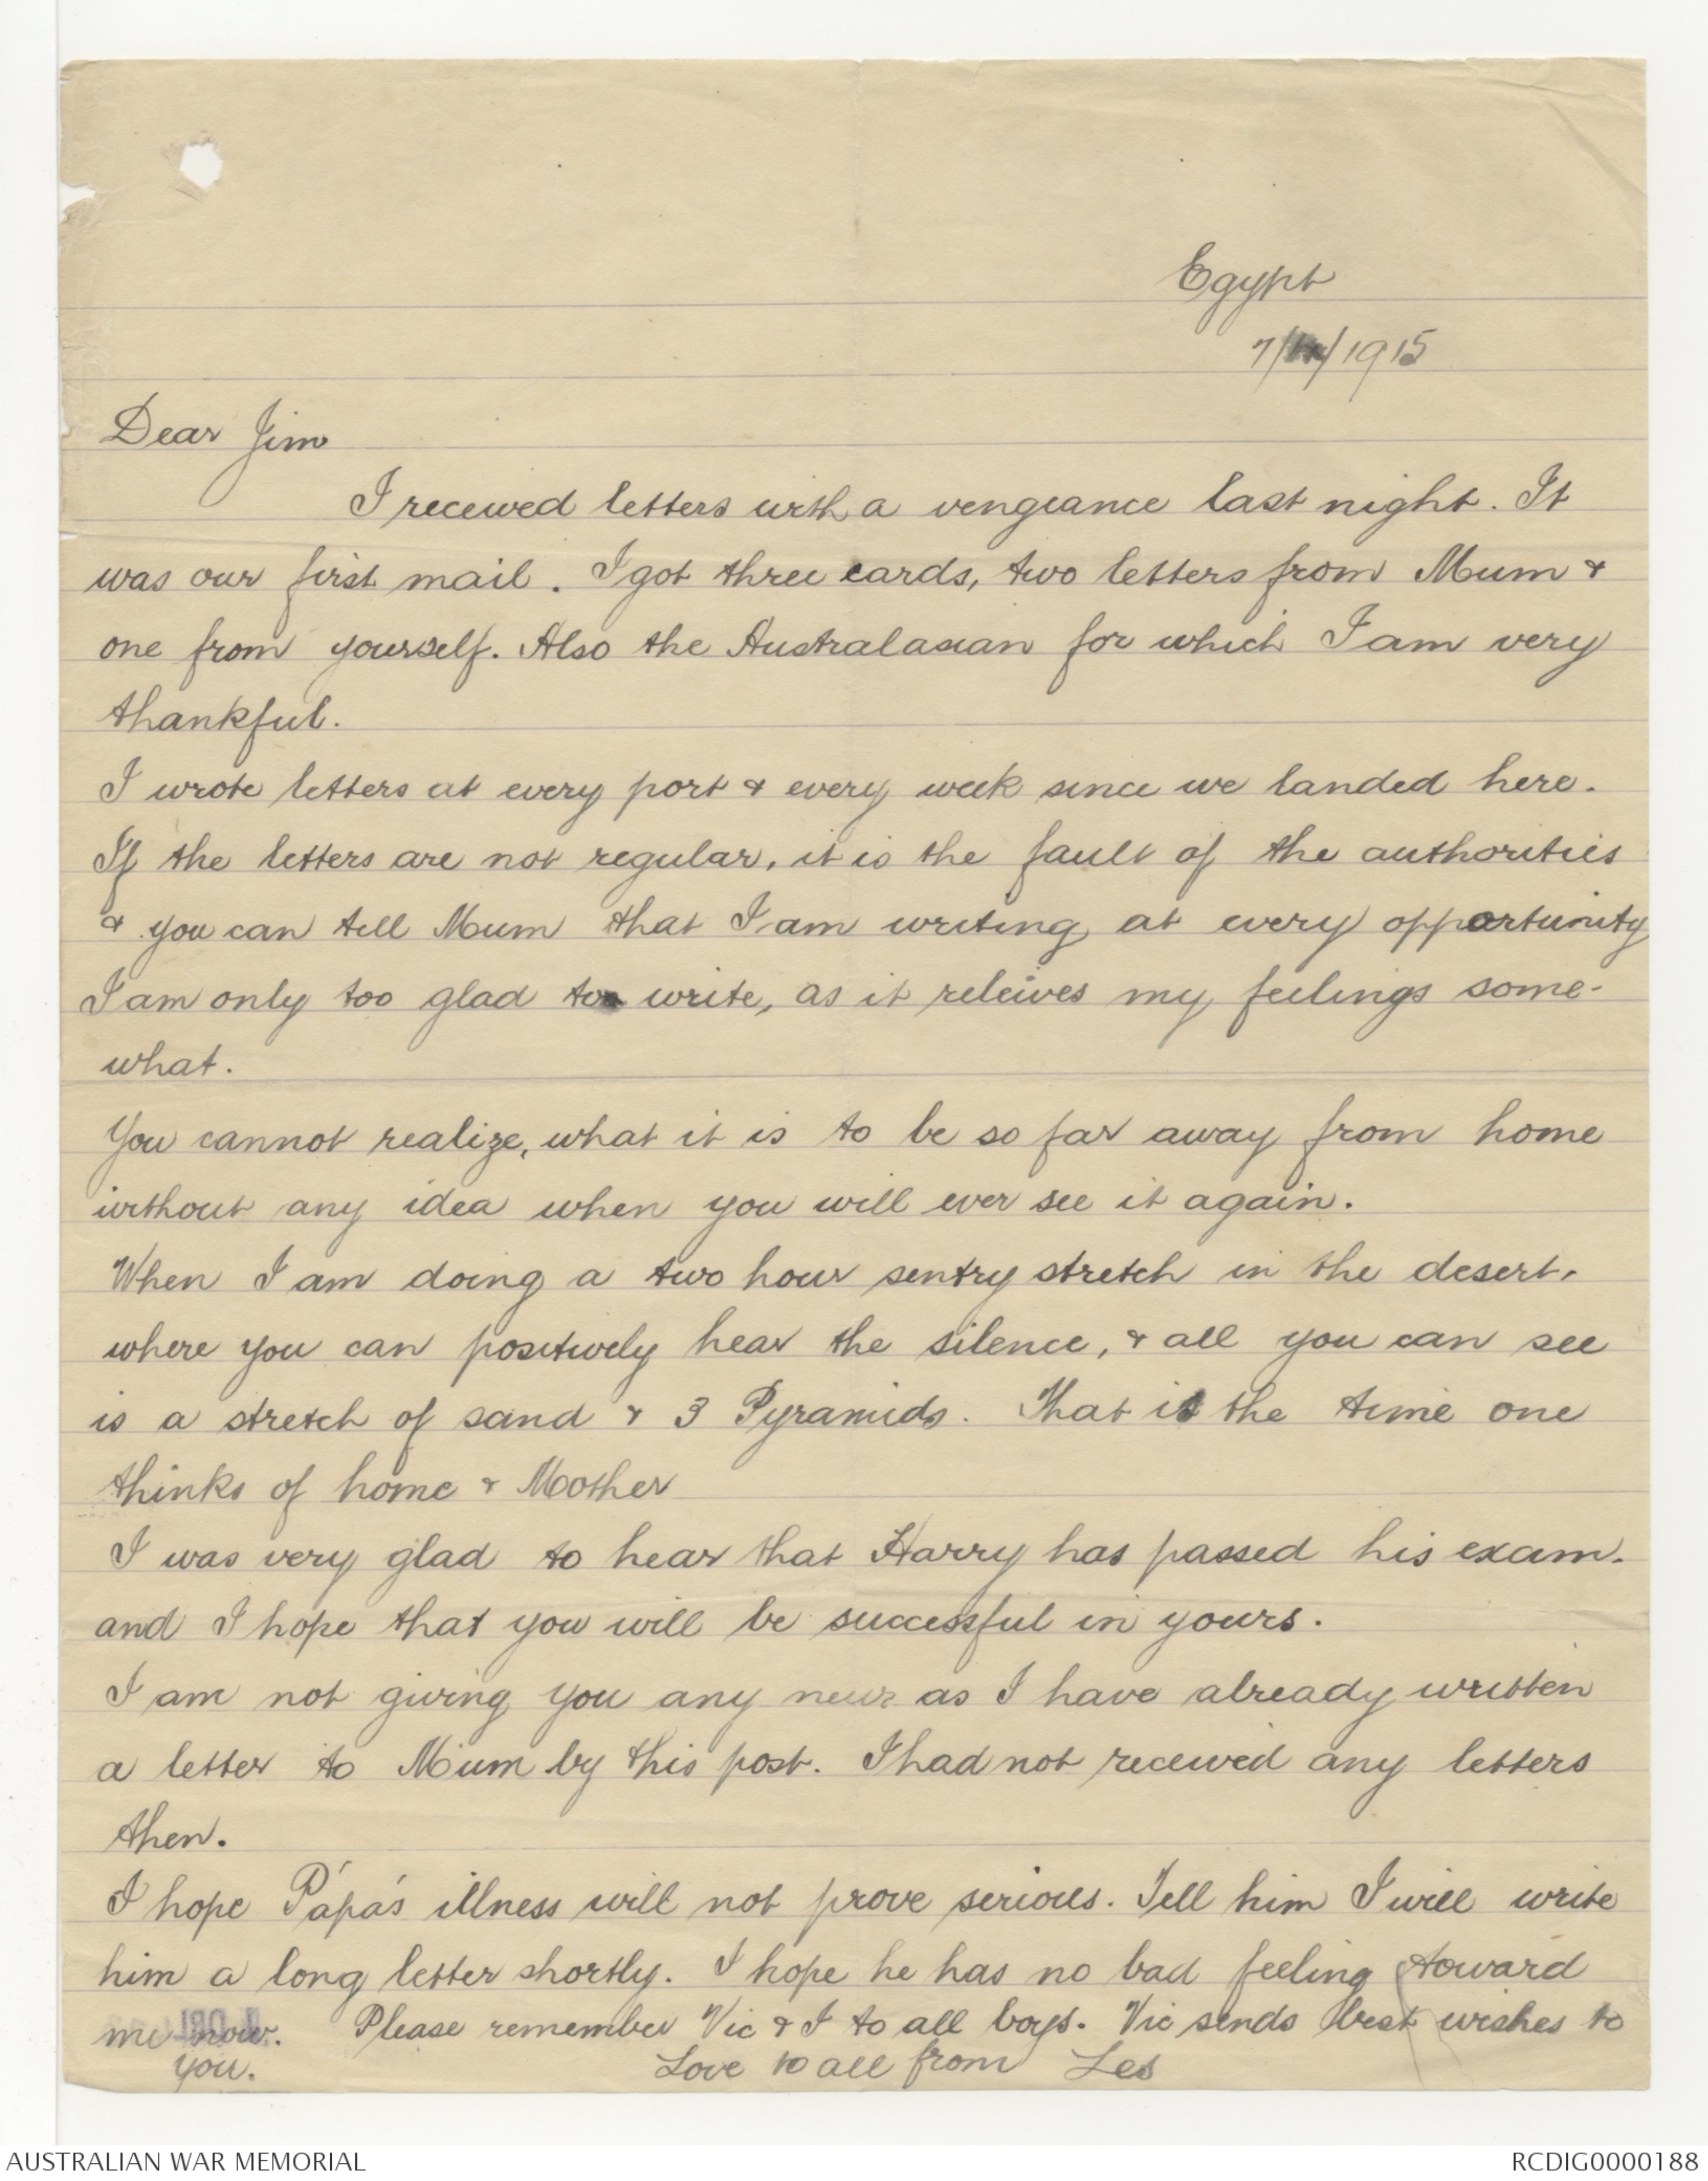 Egypt
7/ /1915
Dear Jim
I received letters with a vengeance last night. It
was our first mail. I got three cards, two letters from Mum &
one from yourself. Also the Australasian for which I am very
thankful.
I wrote letters at every port & every week since we landed here.
If the letters are not regular, it is the fault of the authorities
& you can tell Mum that I am writing at every opportunity
I am only too glad to write, as it releives my feelings some-
what.
You cannot realize, what it is to be so far away from home
without any idea when you will ever see it again.
When I am doing a two hour sentry stretch in the desert,
where you can positively hear the silence, & all you can see
is a stretch of sand & 3 Pyramids. That is the time one
thinks of home & Mother
I was very glad to hear that Harry has passed his exam.
and I hope that you will be successful in yours.
I am not giving you any news as I have already written
a letter to Mum by this post. I had not received any letters
then.
I hope Papa's illness will not prove serious. Tell him I will write
him a long letter shortly. I hope he has no bad feeling toward
me now. Please remember Vic & I to all boys. Vic sends best wishes to
you. Love to all from Les
AUSTRALIAN WAR MEMORIAL
RCDIG0000188